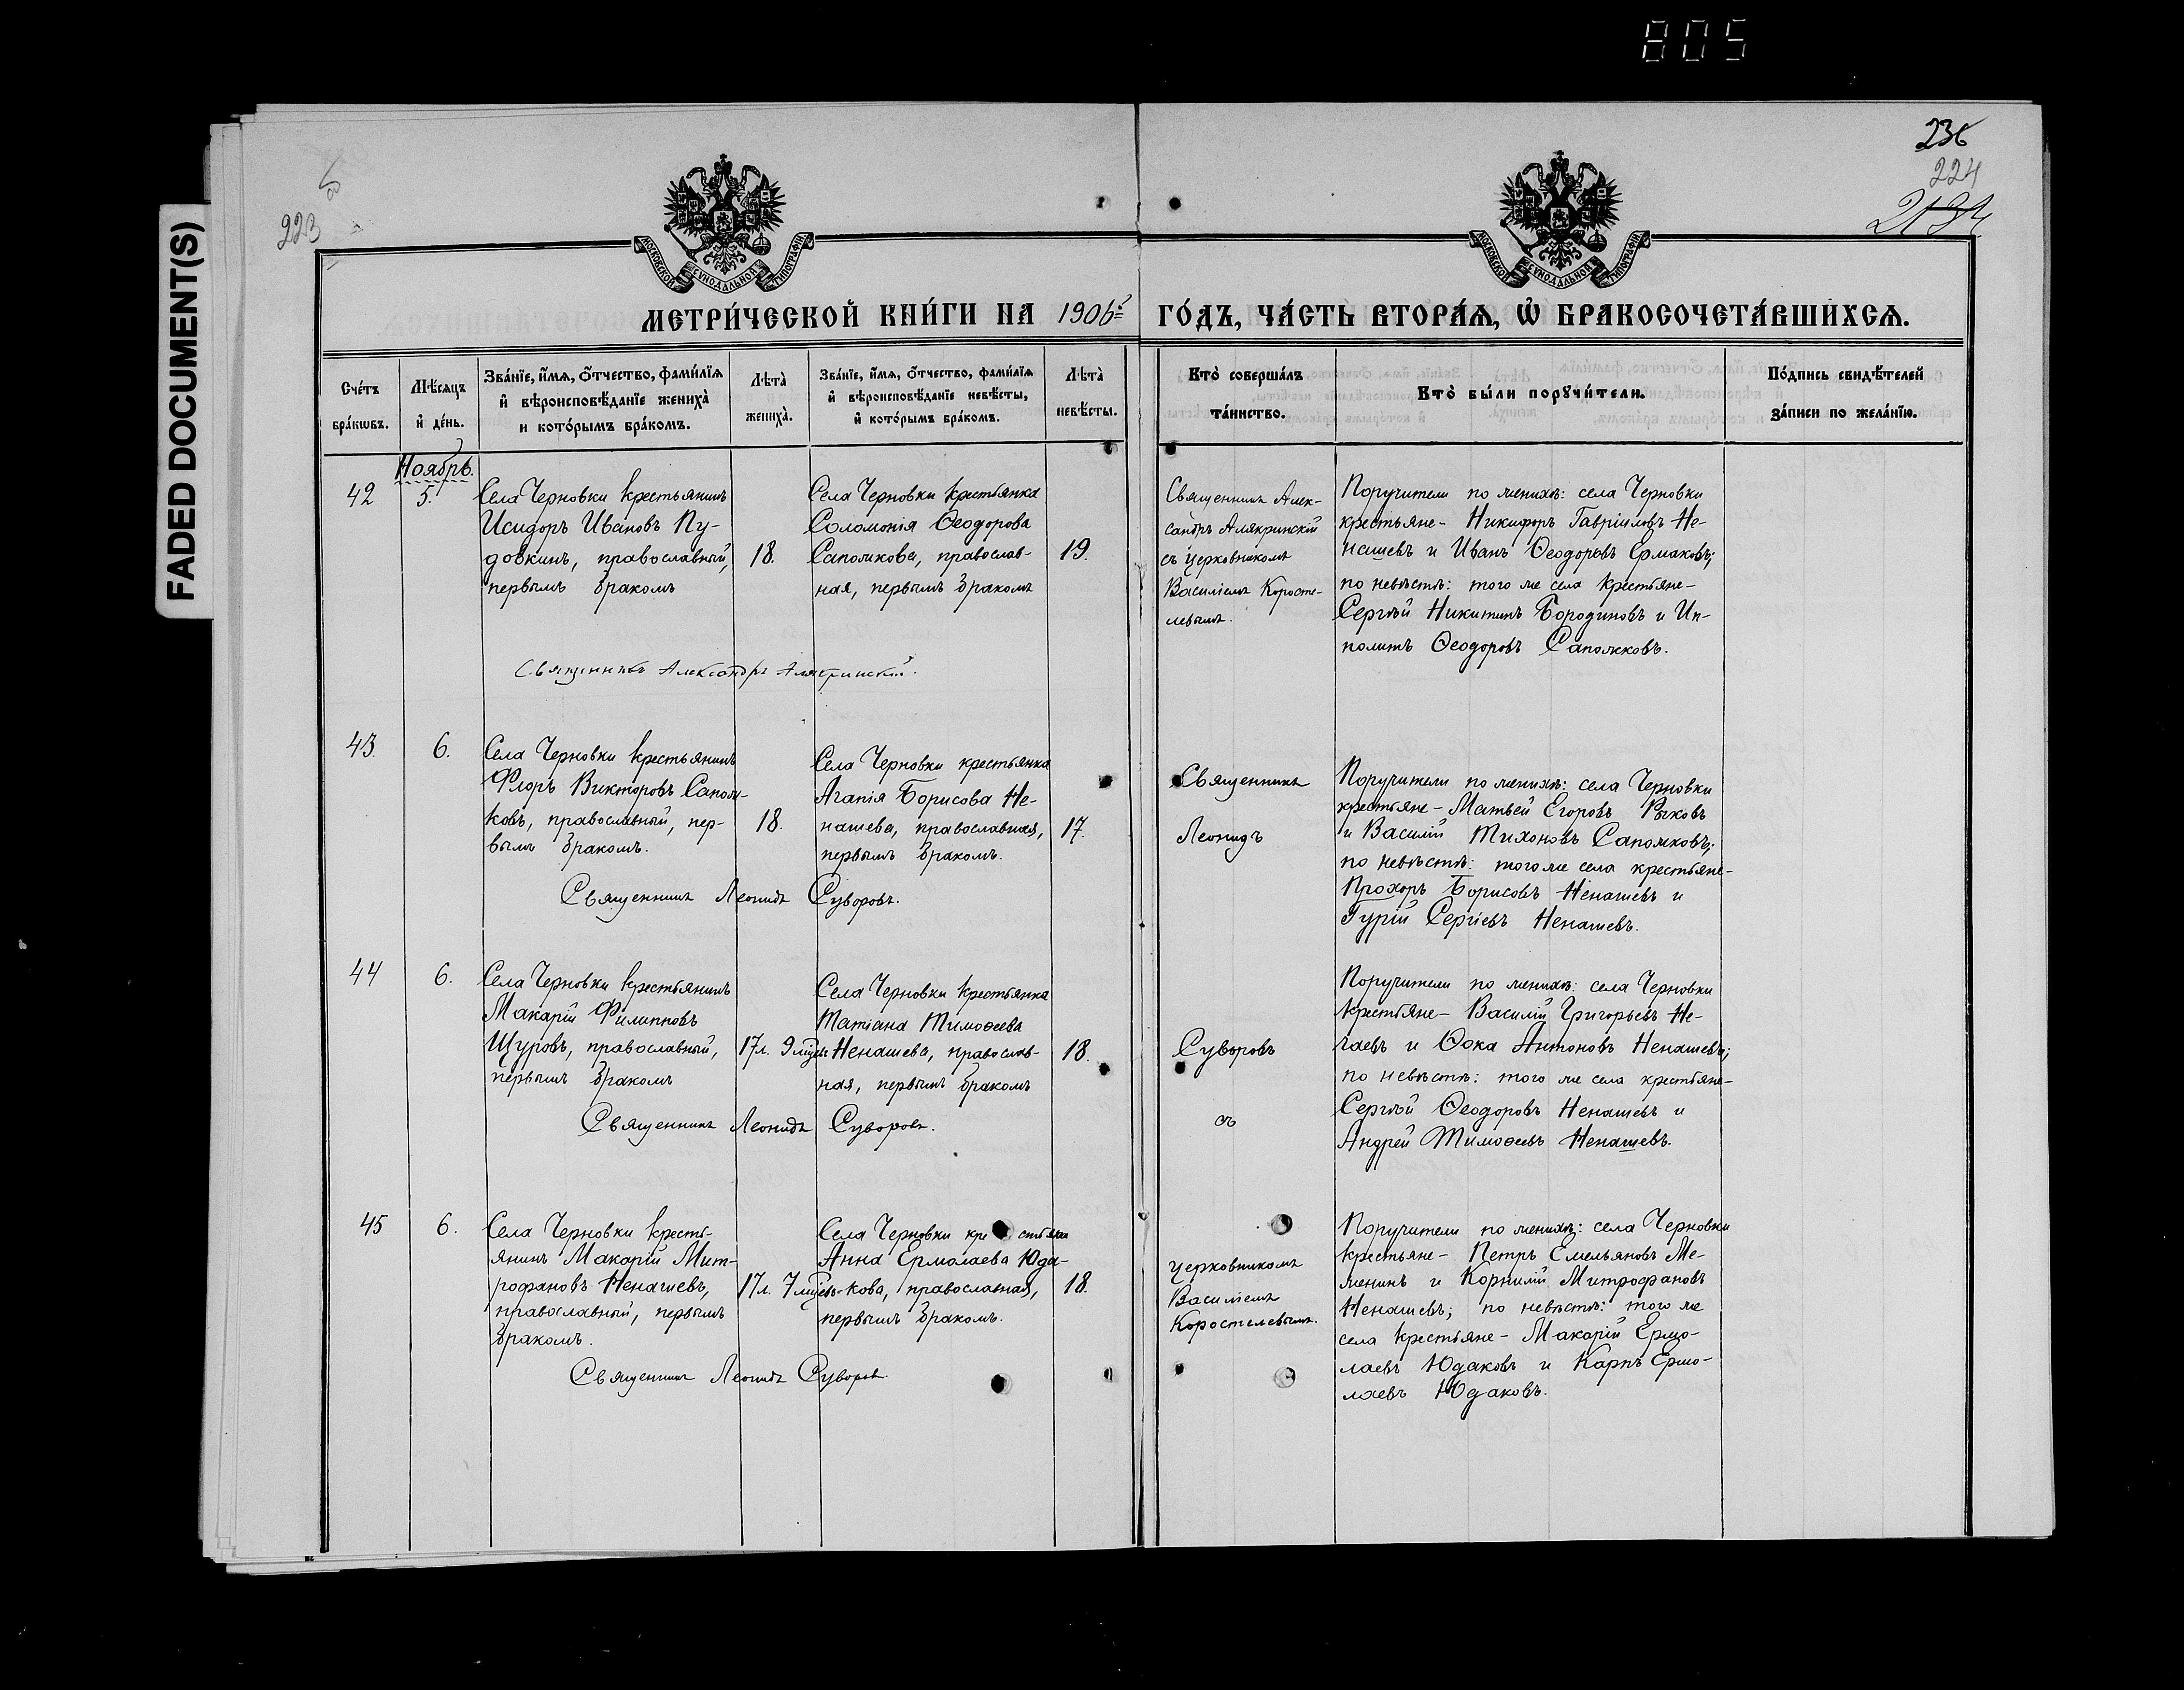 805
FADED DOCUMENT(S)
223
236
224
МОСКОВСКОЙ СУНОДАЛЬНОЙ ТИПОГРАФІИ
МОСКОВСКОЙ СУНОДАЛЬНОЙ ТИПОГРАФІИ
МЕТРИ́ЧЕСКОЙ КНИ́ГИ НА 1906й ГО́ДЪ, ЧА́СТЬ ВТОРА́Ѧ, Ѡ БРАКОСОЧЕТА́ВШИХСѦ.
Сче́тъ
бра́кѡвъ.
Мѣ́сѧцъ
и҆ де́нь.
Зва́нїе, и҆́мѧ, ѻ҆́тчество, фами́лїѧ
и҆ вѣроисповѣ́данїе жениха̀
и кото́рымъ бра́комъ.
Лѣта̀
жениха̀.
Зва́нїе, и҆́мѧ, ѻ҆́тчество, фами́лїѧ
и҆ вѣроисповѣ́данїе невѣ́сты,
и҆ кото́рымъ бра́комъ.
Лѣта̀
невѣ́сты.
Кто̀ соверша́лъ
та́инство.
Кто̀ бы́ли порꙋчи́тели.
По́дпись свидѣ́телей
за́писи по жела́нїю.
Ноябрь.
42
5.
Села Черновки крестьянинъ
Исидоръ Ивановъ Пу-
довкинъ, православный,
первымъ бракомъ
18.
Села Черновки крестьянка
Соломонія Ѳеодорова
Сапожкова, православ-
ная, первымъ бракомъ
19.
Священникъ Алек-
сандръ Алякринскій
съ церковникомъ
Василіемъ Коросте-
левымъ.
Поручители по женихѣ: села Черновки
крестьяне- Никифоръ Гавріиловъ Не-
нашевъ и Иванъ Ѳеодоровъ Ермаковъ;
по невѣстѣ: того же села крестьяне-
Сергѣй Никитинъ Бородиновъ и Ип-
политъ Ѳеодоровъ Сапожковъ.
Священникъ Александръ Алякринскій.
43.
6.
Села Черновки крестьянинъ
Флоръ Викторовъ Сапож-
ковъ, православный, пер-
вымъ бракомъ.
18.
Села Черновки крестьянка
Агапія Борисова Не-
нашева, православная,
первымъ бракомъ.
17.
Священникъ
Леонидъ
Поручители по женихѣ: села Черновки
крестьяне- Матвей Егоровъ Рыковъ
и Василій Тихоновъ Сапожковъ;
по невѣстѣ: того же села крестьяне-
Прохоръ Борисовъ Ненашевъ и
Гурій Сергіевъ Ненашевъ.
Священникъ Леонидъ Суворовъ.
44
6.
Села Черновки крестьянинъ
Макарій Филипповъ
Щуровъ, православный,
первымъ бракомъ
17л. 9 мѣс
Села Черновки крестьянка
Татіана Тимоѳеева
Ненашева, православ-
ная, первымъ бракомъ
18.
Суворовъ
съ
Поручители по женихѣ: села Черновки
крестьяне- Василій Григорьевъ Не-
чаевъ и Ѳока Антоновъ Ненашевъ;
по невѣстѣ: того же села крестьяне-
Сергѣй Ѳеодоровъ Ненашевъ и
Андрей Тимоѳеевъ Ненашевъ.
Священникъ Леонидъ Суворовъ.
45
6.
Села Черновки кресть-
янинъ Макарій Мит-
рофановъ Ненашевъ,
православный, первымъ
бракомъ.
17л. 7 мѣс
Села Черновки крестьянка
Анна Ермолаева Юда-
кова, православная,
первымъ бракомъ.
18.
церковникомъ
Василіемъ
Коростелевымъ.
Поручители по женихѣ: села Черновки
крестьяне- Петръ Емельяновъ Ме-
женинъ и Корнилій Митрофановъ
Ненашевъ; по невѣстѣ: того же
села крестьяне- Макарій Ермо-
лаевъ Юдаковъ и Карпъ Ермо-
лаевъ Юдаковъ.
Священникъ Леонидъ Суворовъ.